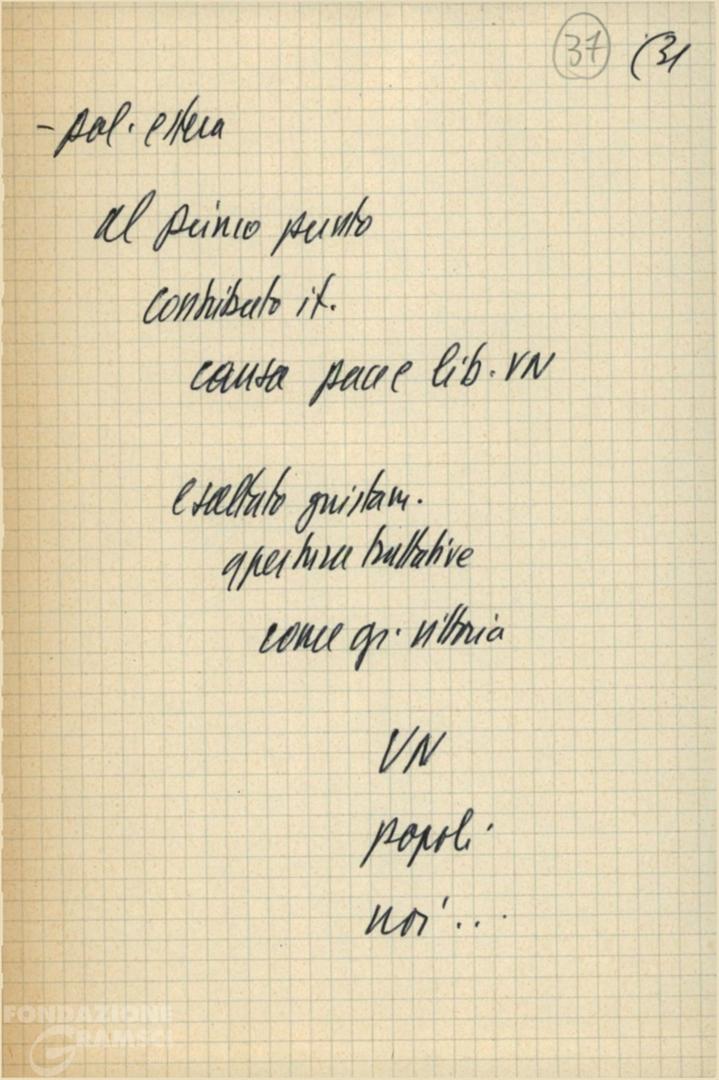 37 (31
- pol. estera
al primo punto
contributo it.
causa pace e lib. VN
esaltato giustam.
apertura trattative
come gr. vittoria
VN
popoli
noi...
FONDAZIONE
GRAMSCI